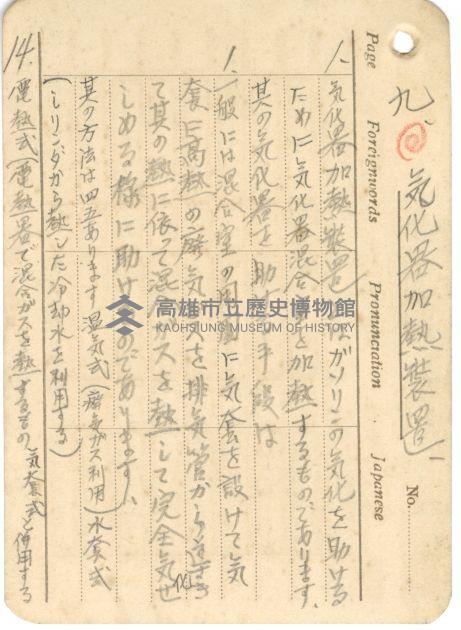 Page Foreignwords Pronunciation. Japanese No.
九、気化器加熱装置
1、気化器加熱装置 はガソリンの気化を助ける
ために気化器混合 を加熱するものであります、
其の気化器を 助 手段は
1、一般には混合室の周囲に気套を設けて気
套に高熱の廃気ガスを排気管から導き
て其の熱に依って混合ガスを熱して完全気化せ
しめる様に助けるのであります、
其の方法は四五あります温気式(廃気ガス利用)水套式
(シリンダから熱した冷却水を利用する)
14.電熱式(電熱器で混合ガスを熱するもの気套式と併用する
高雄市立歷史博物館
KAOHSIUNG MUSEUM OF HISTORY